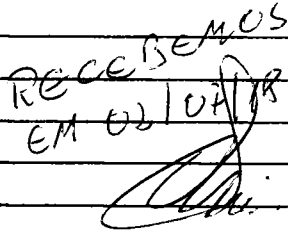 RECEBEMOS
EM 02/07/18